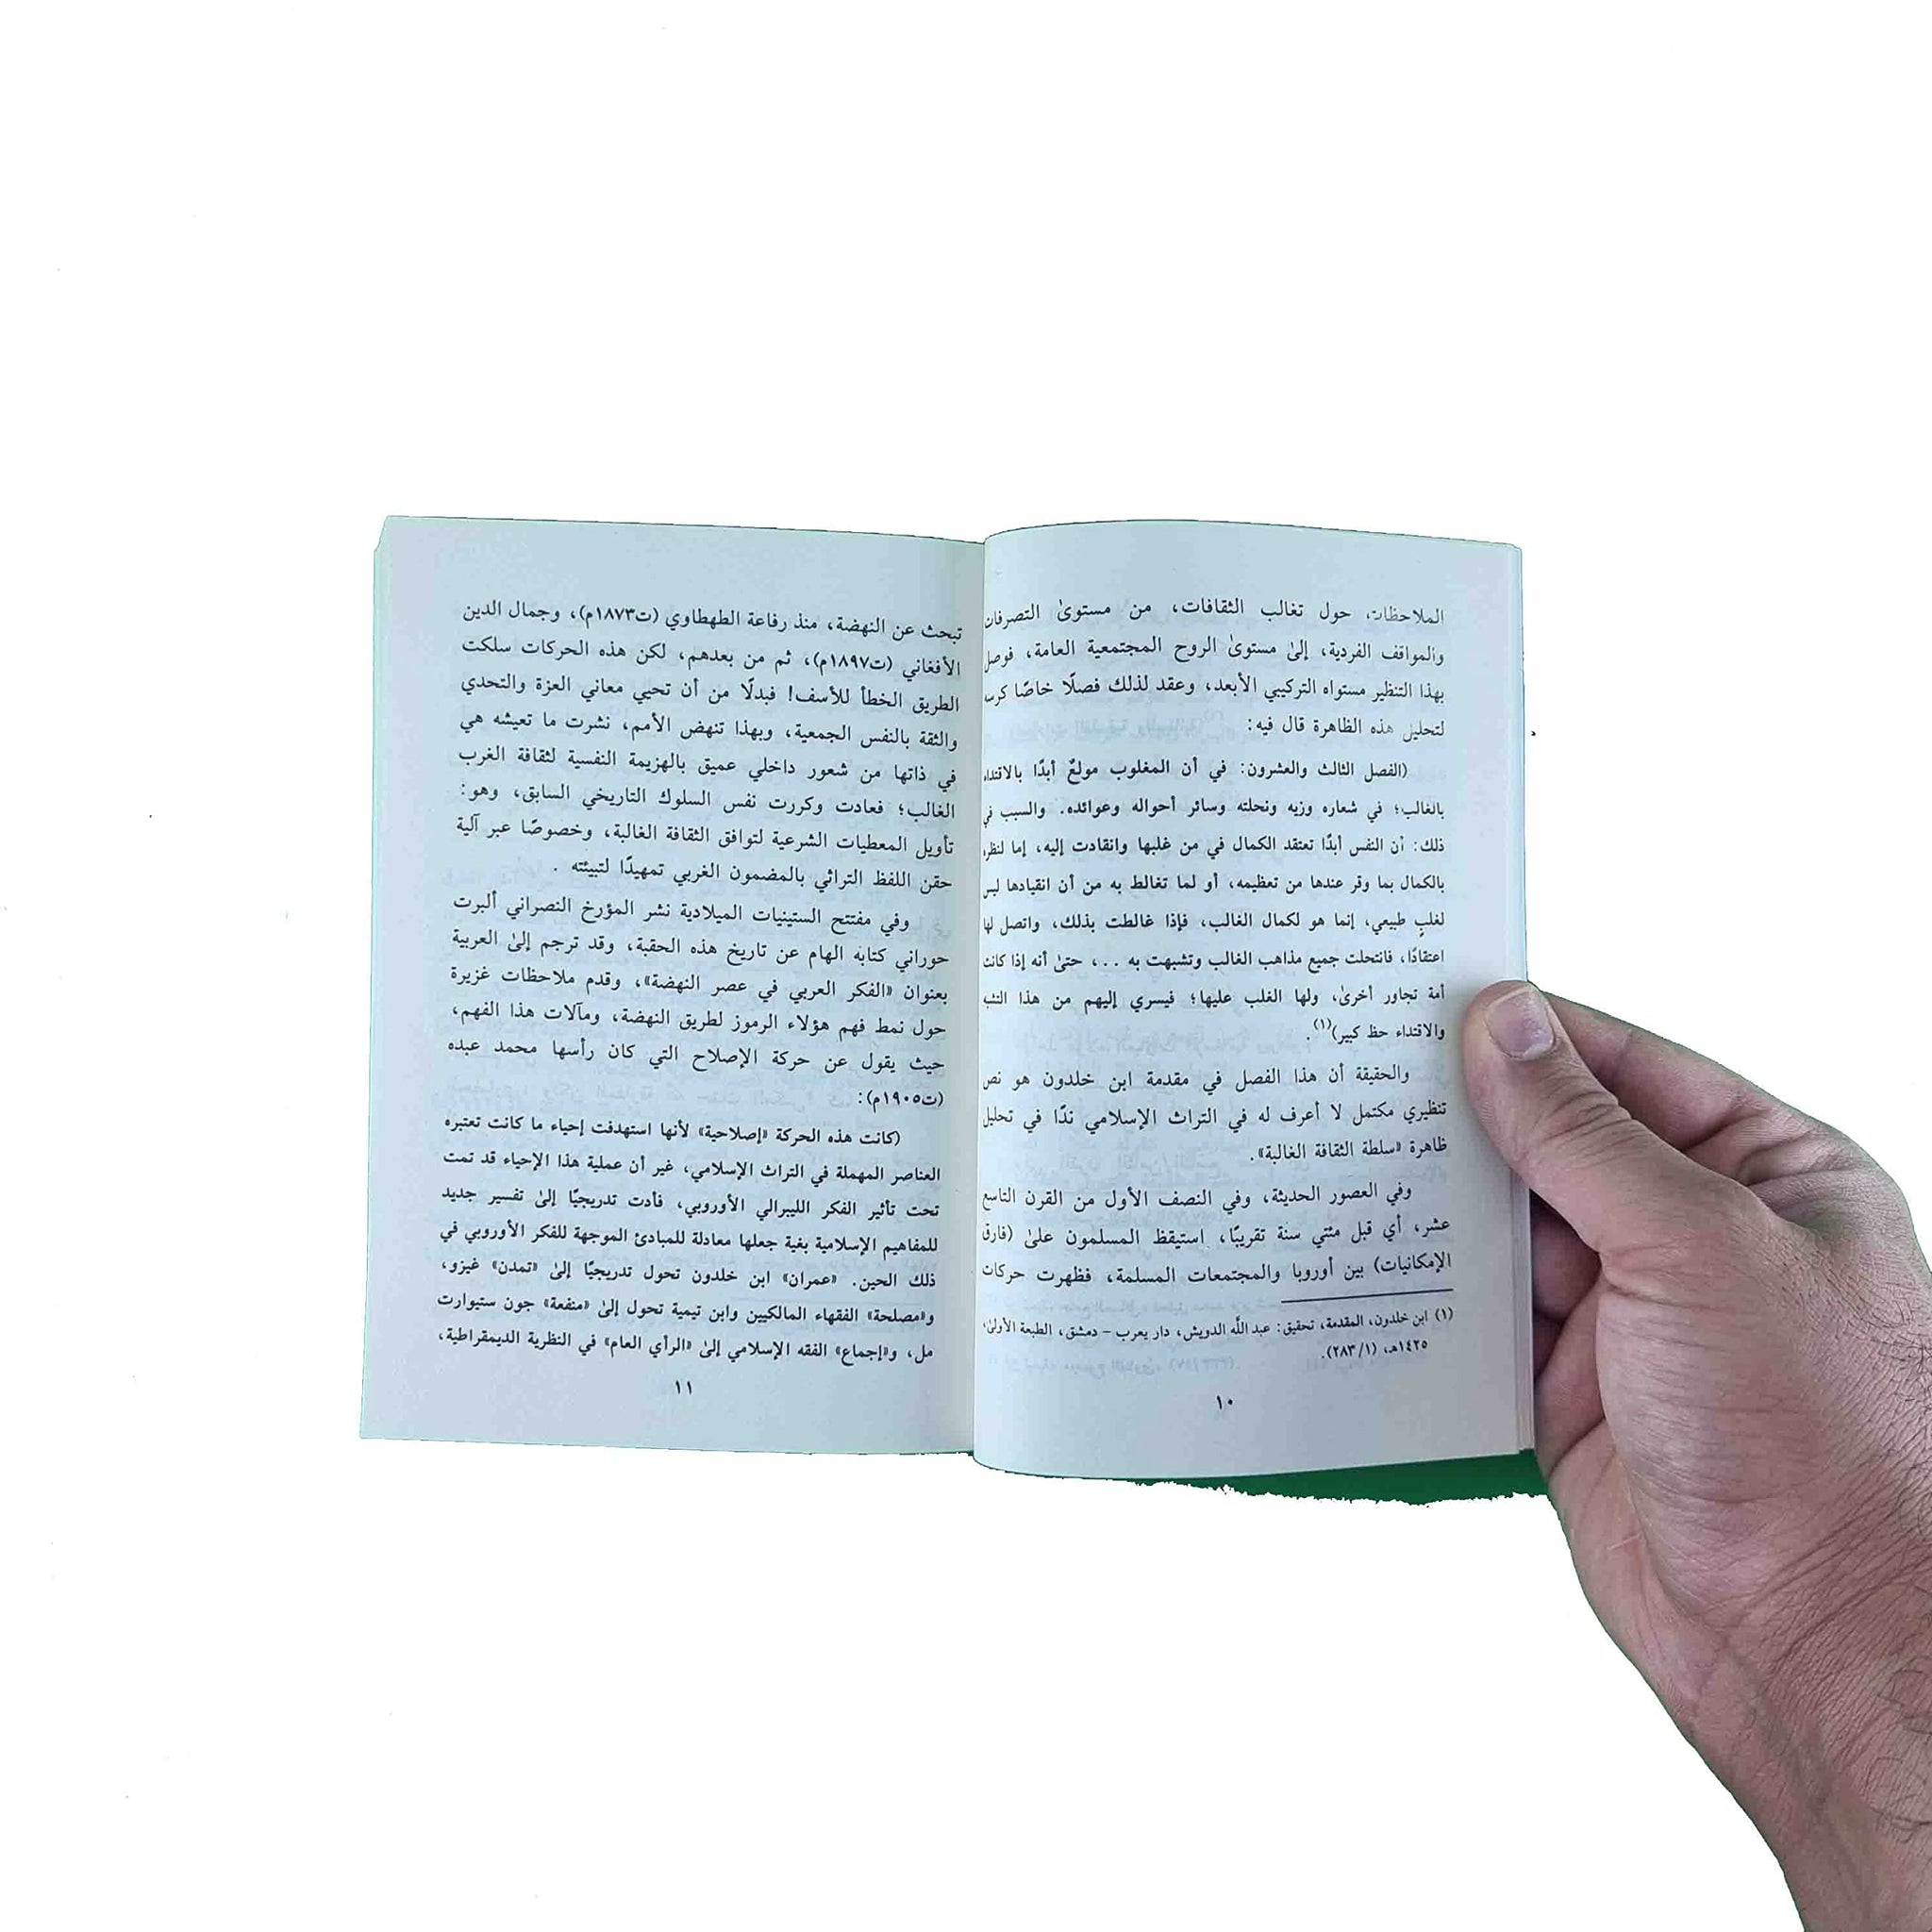 الملاحظات، حول تغالب الثقافات، من مستوىٰ التصرفات
والمواقف الفردية، إلىٰ مستوىٰ الروح المجتمعية العامة، فوصل
بهذا التنظير مستواه التركيبي الأبعد، وعقد لذلك فصلًا خاصًا كرسه
لتحليل هذه الظاهرة قال فيه:
(الفصل الثالث والعشرون: في أن المغلوب مولعٌ أبدًا بالاقتداء
بالغالب؛ في شعاره وزيه ونحلته وسائر أحواله وعوائده. والسبب في
ذلك: أن النفس أبدًا تعتقد الكمال في من غلبها وانقادت إليه، إما لنظره
بالكمال بما وقر عندها من تعظيمه، أو لما تغالط به من أن انقيادها ليس
لغلبٍ طبيعي، إنما هو لكمال الغالب، فإذا غالطت بذلك، واتصل لها
اعتقادًا، فانتحلت جميع مذاهب الغالب وتشبهت به ..، حتىٰ أنه إذا كانت
أمة تجاور أخرىٰ، ولها الغلب عليها؛ فيسري إليهم من هذا التشبه
والاقتداء حظ كبير)(١).
والحقيقة أن هذا الفصل في مقدمة ابن خلدون هو نص
تنظيري مكتمل لا أعرف له في التراث الإسلامي ندًا في تحليل
ظاهرة «سلطة الثقافة الغالبة».
وفي العصور الحديثة، وفي النصف الأول من القرن التاسع
عشر، أي قبل مئتي سنة تقريبًا، استيقظ المسلمون علىٰ (فارق
الإمكانيات) بين أوروبا والمجتمعات المسلمة، فظهرت حركات
(١) ابن خلدون، المقدمة، تحقيق: عبد اللَّه الدويش، دار يعرب - دمشق، الطبعة الأولىٰ،
١٤٢٥هـ، (٢٨٣/١).
١٠
تبحث عن النهضة، منذ رفاعة الطهطاوي (ت١٨٧٣م)، وجمال الدين
الأفغاني (ت١٨٩٧م)، ثم من بعدهم، لكن هذه الحركات سلكت
الطريق الخطأ للأسف! فبدلًا من أن تحيي معاني العزة والتحدي
والثقة بالنفس الجمعية، وبهذا تنهض الأمم، نشرت ما تعيشه هي
في ذاتها من شعور داخلي عميق بالهزيمة النفسية لثقافة الغرب
الغالب؛ فعادت وكررت نفس السلوك التاريخي السابق، وهو:
تأويل المعطيات الشرعية لتوافق الثقافة الغالبة، وخصوصًا عبر آلية
حقن اللفظ التراثي بالمضمون الغربي تمهيدًا لتبيئته .
وفي مفتتح الستينيات الميلادية نشر المؤرخ النصراني ألبرت
حوراني كتابه الهام عن تاريخ هذه الحقبة، وقد ترجم إلىٰ العربية
بعنوان «الفكر العربي في عصر النهضة»، وقدم ملاحظات غزيرة
حول نمط فهم هؤلاء الرموز لطريق النهضة، ومآلات هذا الفهم،
حيث يقول عن حركة الإصلاح التي كان رأسها محمد عبده
(ت١٩٠٥م):
(كانت هذه الحركة «إصلاحية» لأنها استهدفت إحياء ما كانت تعتبره
العناصر المهملة في التراث الإسلامي، غير أن عملية هذا الإحياء قد تمت
تحت تأثير الفكر الليبرالي الأوروبي، فأدت تدريجيًا إلىٰ تفسير جديد
للمفاهيم الإسلامية بغية جعلها معادلة للمبادئ الموجهة للفكر الأوروبي في
ذلك الحين. «عمران» ابن خلدون تحول تدريجيًا إلىٰ «تمدن» غيزو،
و«مصلحة» الفقهاء المالكيين وابن تيمية تحول إلىٰ «منفعة» جون ستيوارت
مل، و«إجماع» الفقه الإسلامي إلىٰ «الرأي العام» في النظرية الديمقراطية،
١١